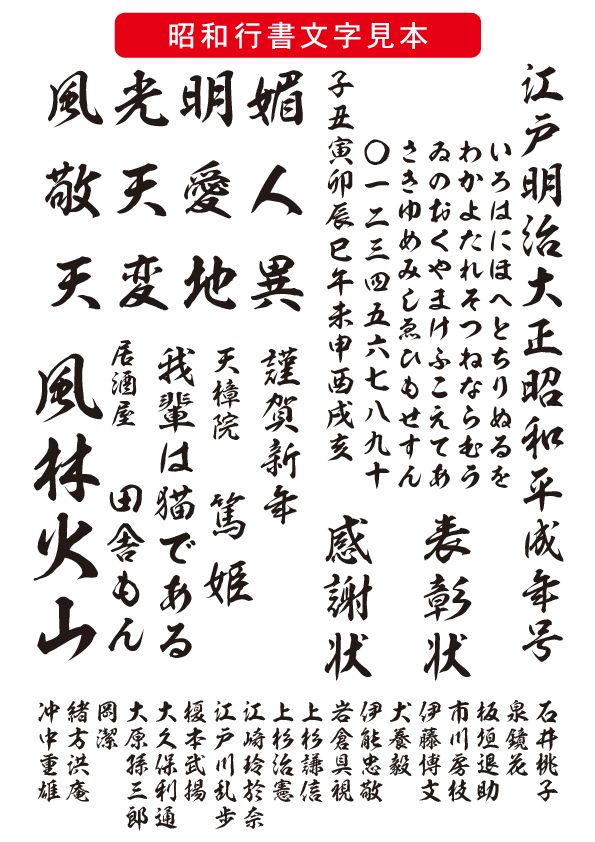 昭和行書文字見本
江戸明治大正昭和平成年号
いろはにほへとちりぬるを
わかよたれそつねならむう
ゐのおくやまけふこえてあ
さきゆめみしゑひもせすん
〇一二三四五六七八九十
子丑寅卯辰巳午未申酉戌亥
表彰状
感謝状
媚人異
明愛地
光天変
風敬天
謹賀新年
天樟院 篤姫
我輩は猫である
居酒屋 田舎もん
風林火山
石井桃子
泉鏡花
板垣退助
市川房枝
伊藤博文
犬養毅
伊能忠敬
岩倉具視
上杉謙信
上杉治憲
江崎玲於奈
江戸川乱歩
榎本武揚
大久保利通
大原孫三郎
岡潔
緒方洪庵
沖中重雄